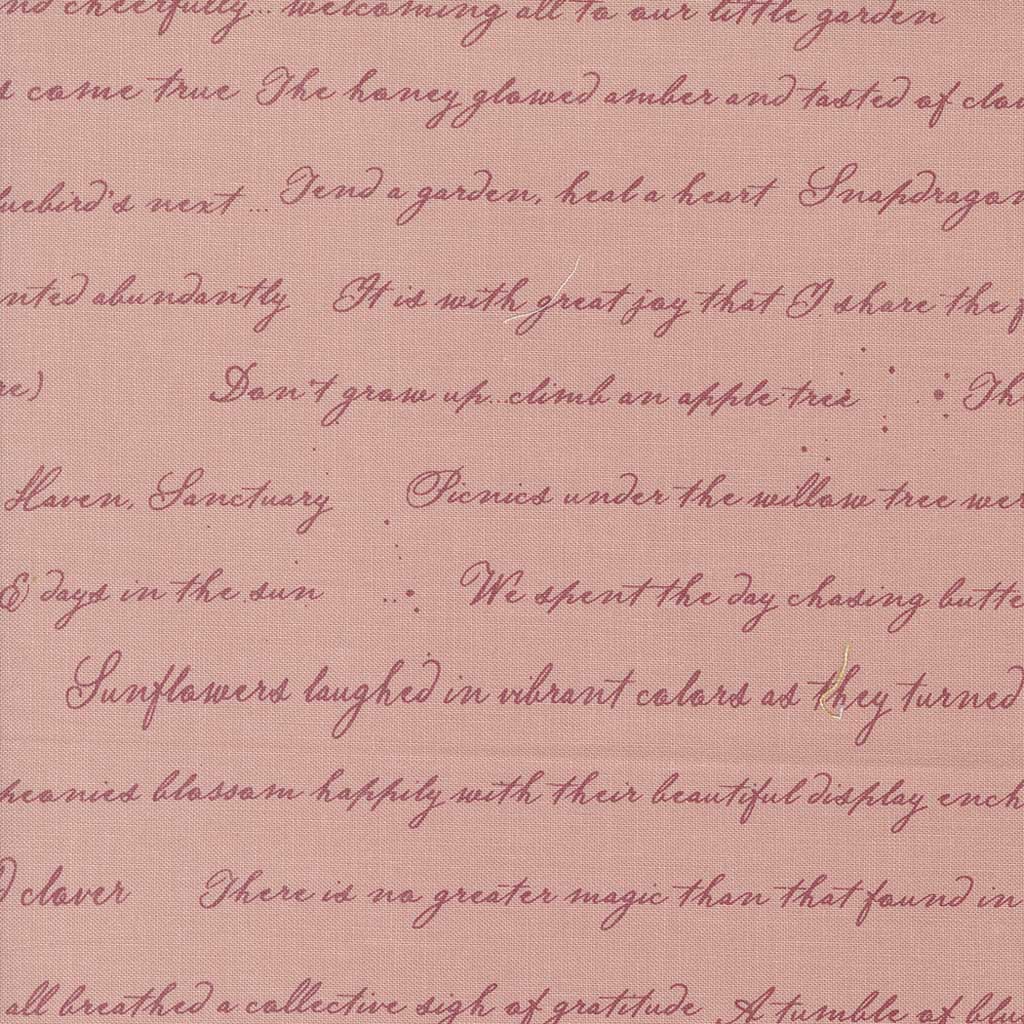 nd cheerfully... welcoming all to our little garden
s come true The honey glowed amber and tasted of clov
uebird's next ... Tend a garden, heal a heart Snapdragon
nted abundantly It is with great joy that I share the f
re) Don't grow up...climb an apple tree Th
Haven, Sanctuary Picnics under the willow tree wer
& days in the sun We spent the day chasing butte
Sunflowers laughed in vibrant colors as they turned
peonies blossom happily with their beautiful display ench
d clover There is no greater magic than that found in
all breathed a collective sigh of gratitude A tumble of blu